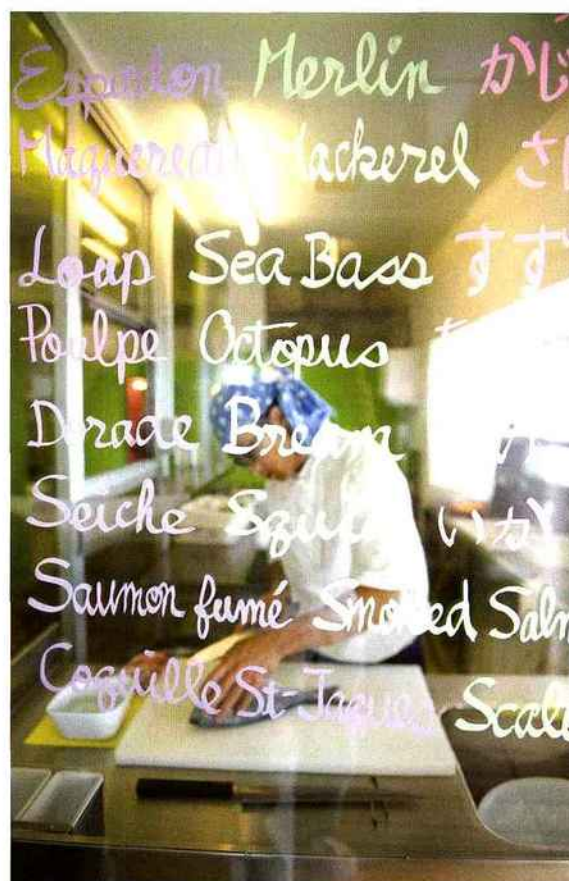 Espadon Merlin かじ
Maquereau Mackerel さ
Loup Sea Bass すず
Poulpe Octopus
Dorade Bream
Seiche Squid いか
Saumon fumé Smoked Salm
Coquille St-Jaques Scal